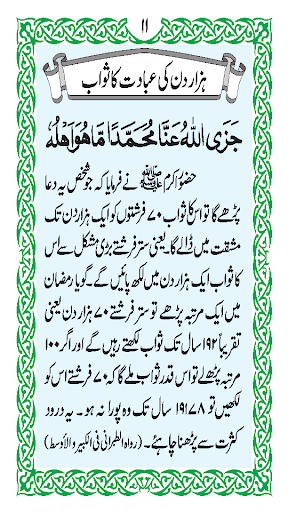 ۱۱
ہزار دن کی عبادت کا ثواب
جَزَى اللّٰهُ عَنَّا مُحَمَّدًا مَّا هُوَ اَهْلُهٗ
حضور اکرم ﷺ نے فرمایا کہ جو شخص یہ دعا
پڑھے گا تو اس کا ثواب ۷۰ فرشتوں کو ایک ہزار دن تک
مشقت میں ڈالے گا۔ یعنی ستر فرشتے بڑی مشکل سے اس
کا ثواب ایک ہزار دن میں لکھ پائیں گے۔ گویا رمضان
میں ایک مرتبہ پڑھے تو ستر فرشتے ۷۰ ہزار دن یعنی
تقریباً ۱۹۲ سال تک ثواب لکھتے رہیں گے اور اگر ۱۰۰
مرتبہ پڑھ لے تو اس قدر ثواب ملے گا کہ ۷۰ فرشتے اس کو
لکھیں تو ۱۹۱۷۸ سال تک وہ پورا نہ ہو۔ یہ درود
کثرت سے پڑھنا چاہئے۔ (رواہ الطبرانی فی الکبیر والاوسط)